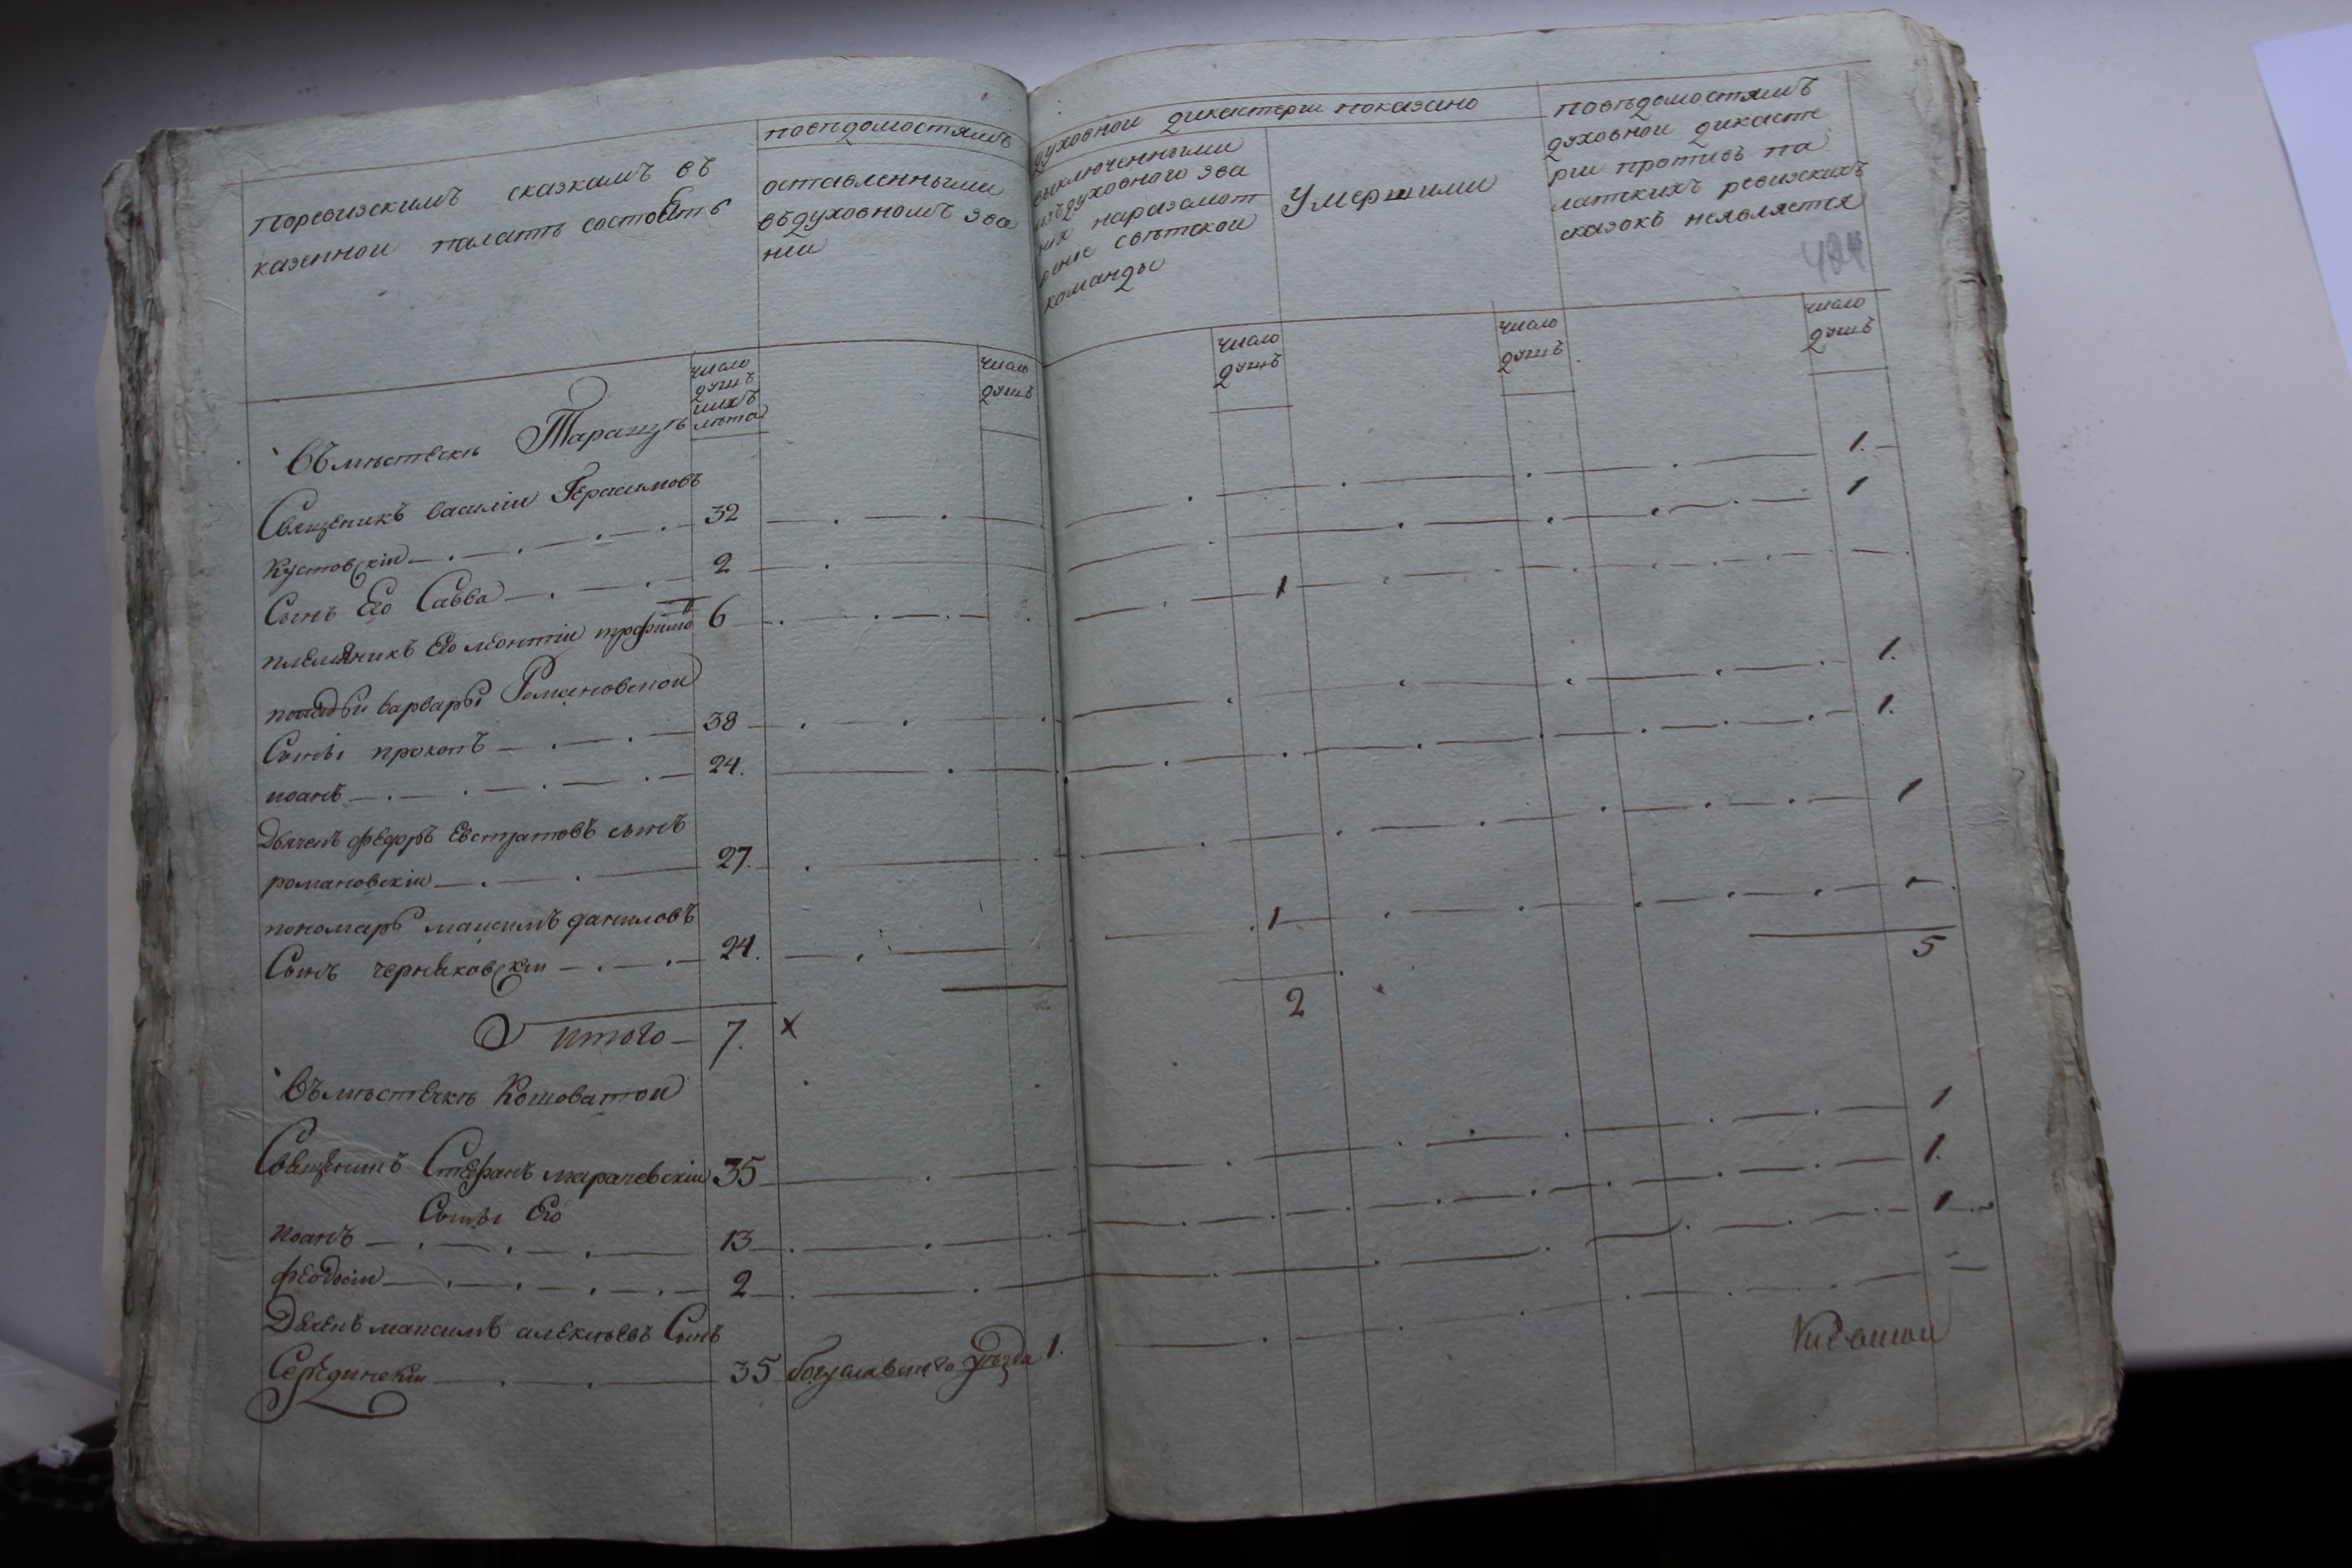 Поревизскимъ сказкамъ въ
казенной палатъ состоитъ
повѣдомостямъ
оставленными
въдуховномъ зва
нии
духовной дикастерии показано
выключенными
изъдуховнаго зва
ния наразсмот
рение свѣтской
команды
Умершими
повѣдомостямъ
духовной дикасте
рии противъ па
латскихъ ревизскихъ
сказокъ неявляется
484
число
душъ
ихъ
лѣта
число
душъ
число
душъ
число
душъ
число
душъ
Въмѣстечкѣ Таращѣ
Священикъ василіи Герасимовъ
Кустовскіи 32 1.
Сынъ Его Савва 2 1
племяникъ Его леонтіи трофимо 6 1
попадьи варвары Романовской
Сыны прокопъ 38 1.
иоанъ 24. 1.
Дьячекъ федоръ Евстратовъ сынъ
романовскіи 27. 1
пономарь максимъ даниловъ
Сынъ черняковскіи 24. 1
итого 7. х 2 5
Въмѣстечкѣ Кошоватой
Священикъ Стефанъ марачевскіи 35 1
Сыны Его
иоанъ 13 1.
феодосіи 2 1
Дьячекъ максимъ алексѣевъ Сынъ
Серединскіи 35 богуславскаго уѣзда 1.